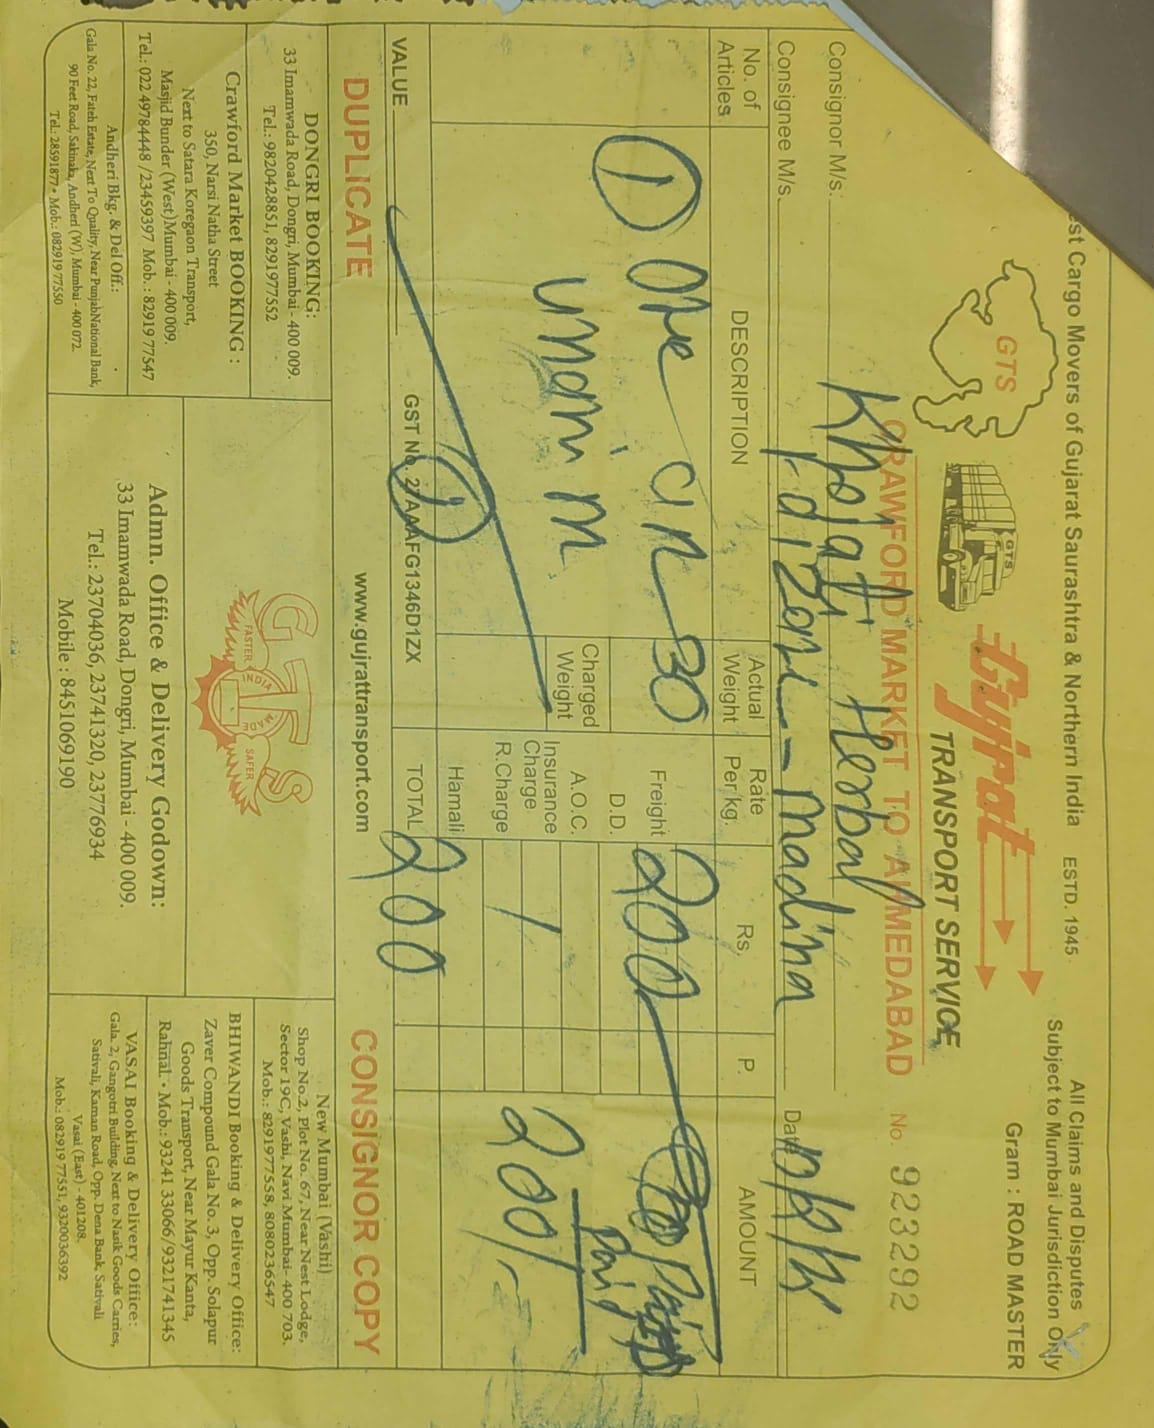 est Cargo Movers of Gujarat Saurashtra & Northern India ESTD. 1945
All Claims and Disputes
Subject to Mumbai Jurisdiction Only
Gram : ROAD MASTER
GTS
GTS
Gujrat
TRANSPORT SERVICE
CRAWFORD MARKET TO AHMEDABAD
No. 923292
Consignor M/s. Khojati Herbal
Consignee M/s. Madina
Date
No. of Articles
DESCRIPTION
Actual Weight
Rate Per kg.
Rs.
P.
AMOUNT
1 One
30
Freight
200
Paid
D.D.
Charged Weight
A.O.C.
Insurance Charge
R.Charge
200/-
Hamali
1
VALUE
GST No. 27AAAFG1346D1ZX
TOTAL
200
DUPLICATE
www.gujrattransport.com
CONSIGNOR COPY
DONGRI BOOKING:
33 Imamwada Road, Dongri, Mumbai - 400 009.
Tel.: 9820428851, 8291977552
Crawford Market BOOKING :
350, Narsi Natha Street
Next to Satara Koregaon Transport,
Masjid Bunder (West)Mumbai - 400 009.
Tel.: 022 49784448 /23459397 Mob.: 82919 77547
Andheri Bkg. & Del Off.:
Gala No. 22, Fateh Estate, Next To Quality, Near PunjabNational Bank,
90 Feet Road, Sakinaka, Andheri (W), Mumbai - 400 072.
Tel.: 28591877 • Mob.: 082919 77550
GTS
FASTER
INDIA
MADE
SAFER
Admn. Office & Delivery Godown:
33 Imamwada Road, Dongri, Mumbai - 400 009.
Tel.: 23704036, 23741320, 23776934
Mobile : 8451069190
New Mumbai (Vashi)
Shop No.2, Plot No. 67, Near Nest Lodge,
Sector 19C, Vashi, Navi Mumbai- 400 703.
Mob.: 8291977558, 8080236547
BHIWANDI Booking & Delivery Office:
Zaver Compound Gala No. 3, Opp. Solapur
Goods Transport, Near Mayur Kanta,
Rahnal. • Mob.: 93241 33066/9321741345
VASAI Booking & Delivery Office:
Gala. 2, Gangotri Building, Next to Nasik Goods Carries,
Sativali, Kaman Road, Opp. Dena Bank, Sativali
Vasai (East) - 401208.
Mob.: 082919 77551, 9320036392